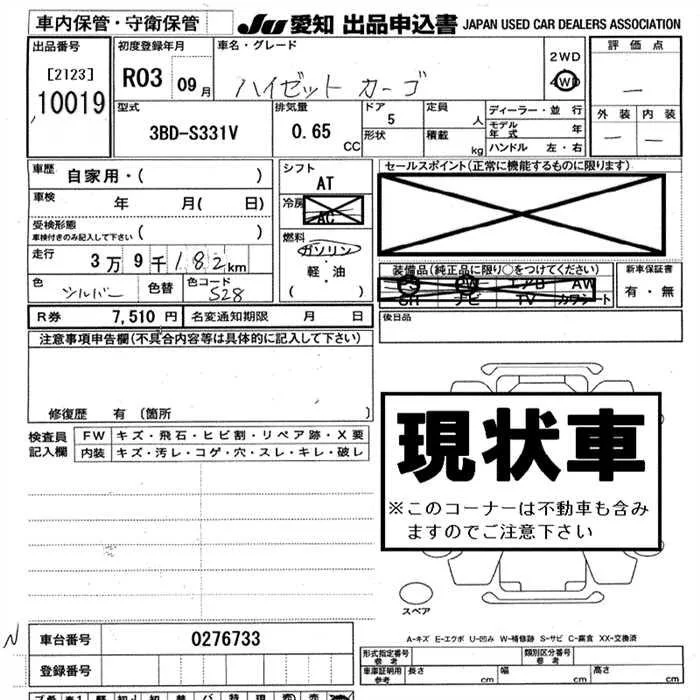 車内保管・守衛保管 JU 愛知 出品申込書 JAPAN USED CAR DEALERS ASSOCIATION
出品番号 初度登録年月 車名・グレード 2WD 評価点
[2123] R03 09月 ハイゼット カーゴ 4WD —
10019 外装 内装
型式 排気量 ドア 定員 ディーラー・並行
3BD-S331V 0.65 CC 5 人 モデル年式 年 — —
形状 積載 kg ハンドル 左・右
車歴 自家用・( ) シフト セールスポイント(正常に機能するものに限ります)
AT
車検 年 月( 日) 冷房
AC
受検形態
車検付きのみ記入して下さい ( ) 燃料
走行 3万9千182km ガソリン 装備品(純正品に限り○をつけてください) 新車保証書
軽・油 SR PW エアB AW 有・無
色 シルバー 色替 色コード S28 ( ) SH ナビ TV カワシート
R券 7,510円 名変通知期限 月 日 後日品
注意事項申告欄(不具合内容等は具体的に記入して下さい)
修復歴 有 〔箇所 〕
検査員 FW キズ・飛石・ヒビ割・リペア跡・X要
記入欄 内装 キズ・汚レ・コゲ・穴・スレ・キレ・破レ
現状車
※このコーナーは不動車も含み
ますのでご注意下さい
スペア
A-キズ E-エクボ U-凹み W-補修跡 S-サビ C-腐食 XX-交換済
N 車台番号 0276733
登録番号
形式指定番号 参考 類別区分番号 参考
車庫証明用 参考 長さ cm 幅 cm 高さ cm